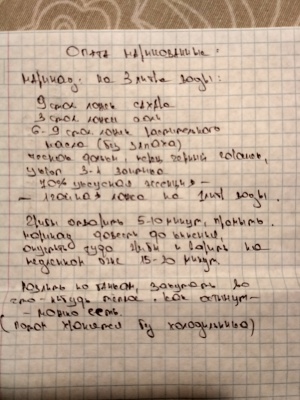 Опята маринованные:
маринад: на 3 литра воды:
9 стол ложек сахара
3 стол ложки соли
6-9 стол ложек растительного
масла (без запаха)
чеснок дольки, перец черный горошек,
укроп 3-4 зонтика
70% уксусная эссенция -
- 1 чайная ложка на 1 литр воды.
Грибы отварить 5-10 минут, промыть.
маринад довести до кипения,
опустить туда грибы и варить на
медленном огне 15-20 минут.
Разлить по банкам, закутать во
что-нибудь теплое. Как остынут -
- можно есть.
( хранятся без холодильника)